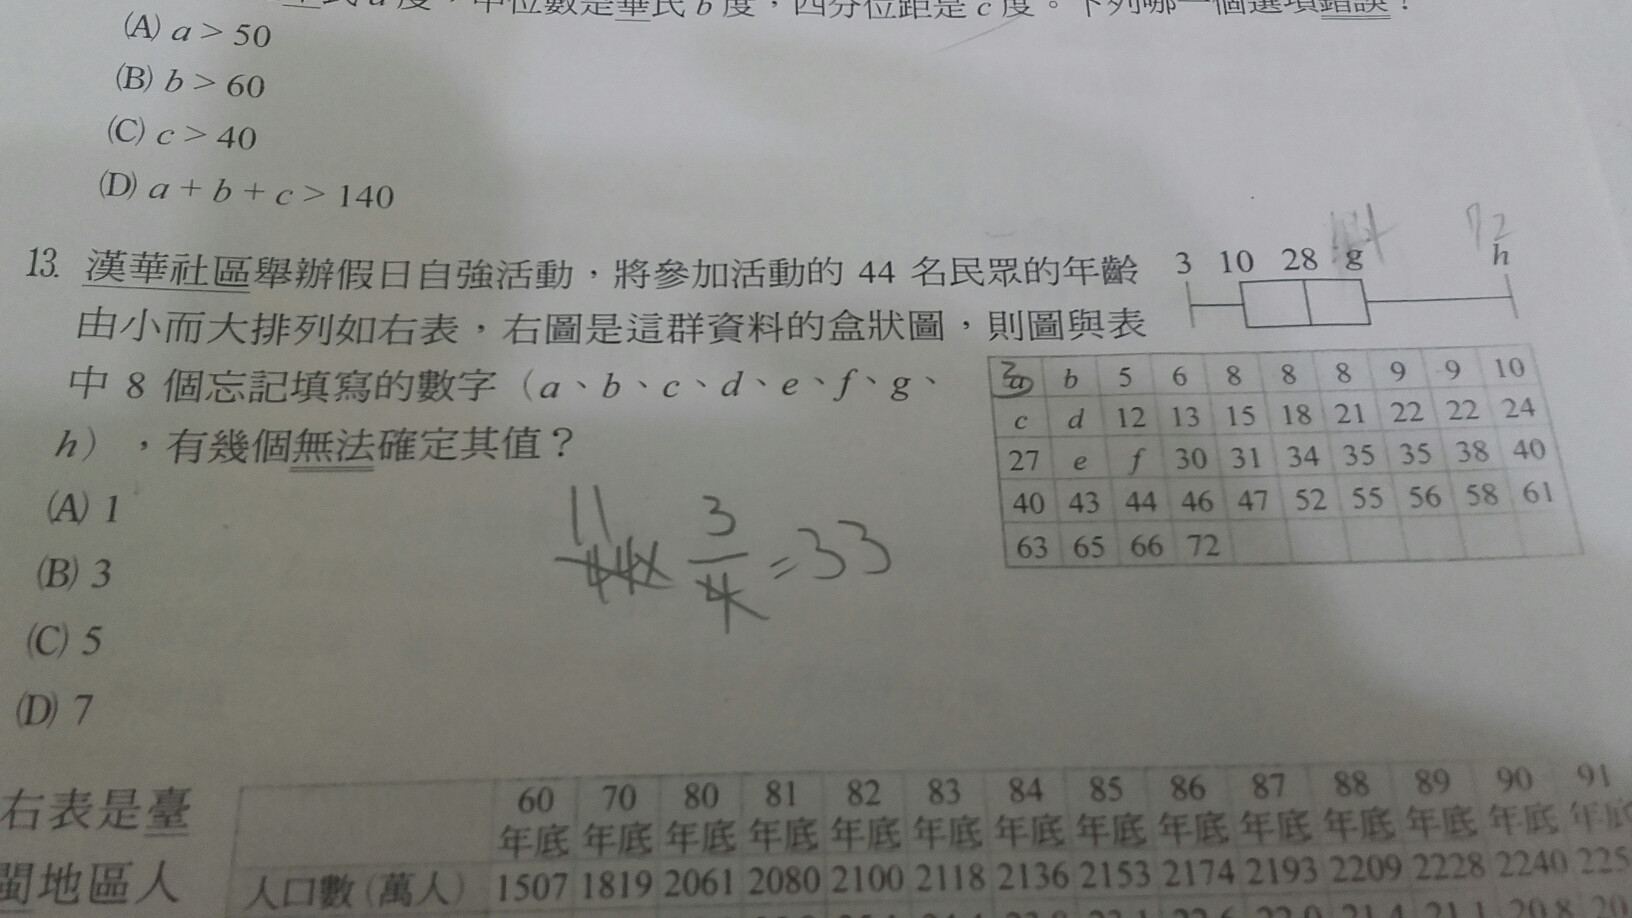 度，中位數是華氏 b 度，四分位距是 c 度。下列哪一個選項錯誤？
(A) a > 50
(B) b > 60
(C) c > 40
(D) a + b + c > 140
13. 漢華社區舉辦假日自強活動，將參加活動的 44 名民眾的年齡
由小而大排列如右表，右圖是這群資料的盒狀圖，則圖與表
中 8 個忘記填寫的數字（a、b、c、d、e、f、g、
h），有幾個無法確定其值？
(A) 1
(B) 3
(C) 5
(D) 7
44 72
3 10 28 g h
3 a b 5 6 8 8 8 9 9 10
c d 12 13 15 18 21 22 22 24
27 e f 30 31 34 35 35 38 40
40 43 44 46 47 52 55 56 58 61
63 65 66 72
11
44 × 3/4 = 33
右表是臺 60 70 80 81 82 83 84 85 86 87 88 89 90 91
年底 年底 年底 年底 年底 年底 年底 年底 年底 年底 年底 年底 年底 年底
閩地區人 人口數(萬人) 1507 1819 2061 2080 2100 2118 2136 2153 2174 2193 2209 2228 2240 225